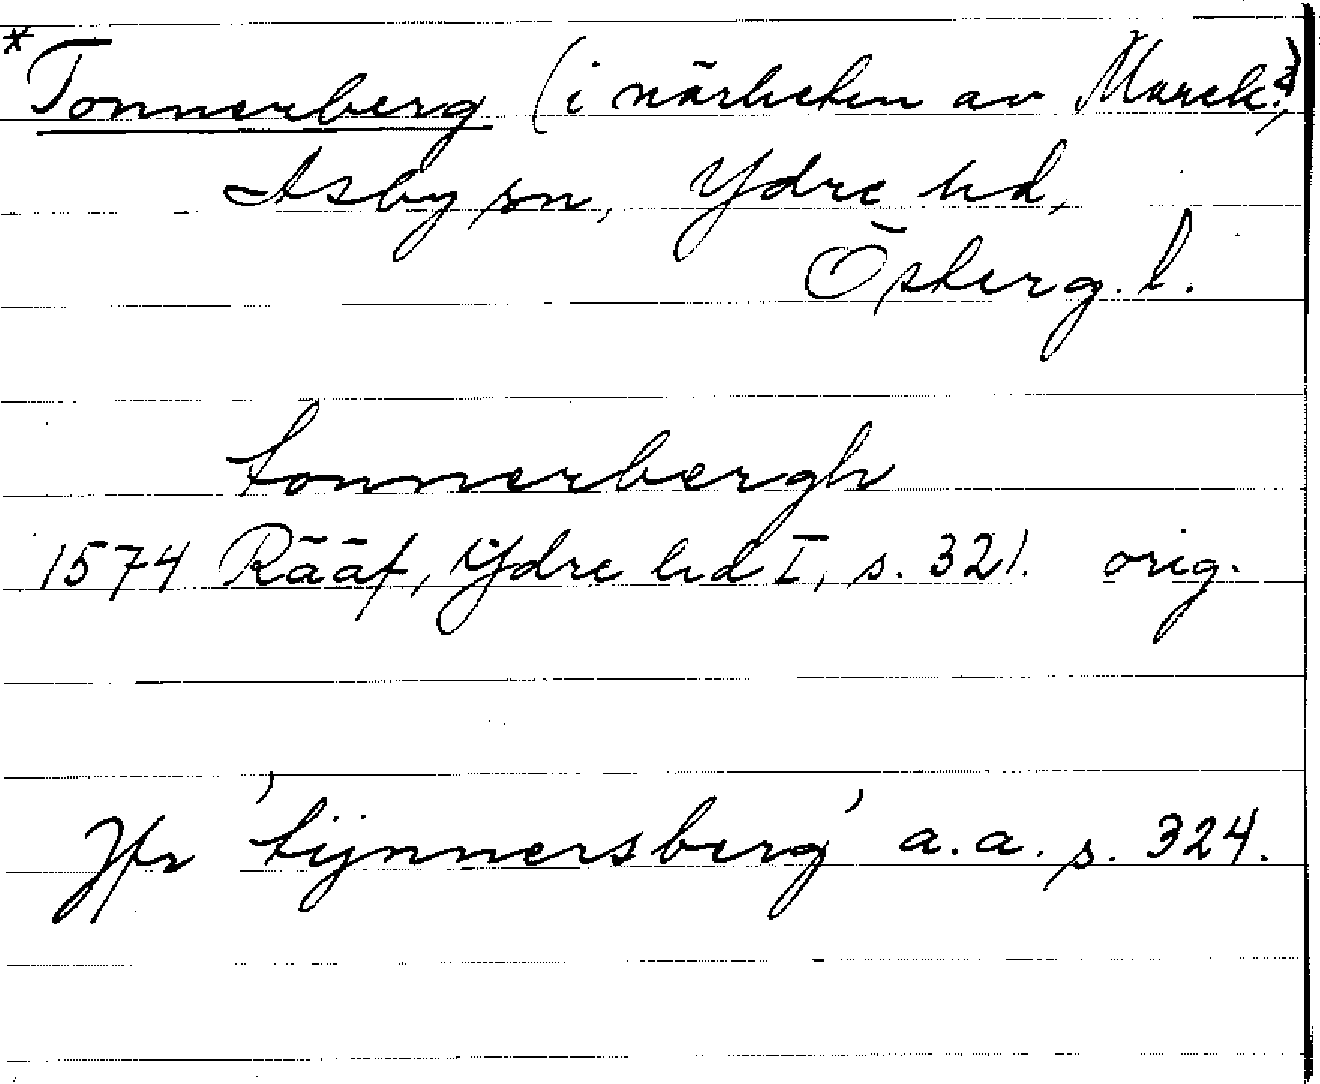 *Tonnerberg (i närheten av Marek?)
Asby sn, Ydre hd,
Österg. l.
tonnerbergh
1574 Rääf, Ydre hd I, s. 321. orig.
Jfr 'tÿnnersberg' a.a. s. 324.